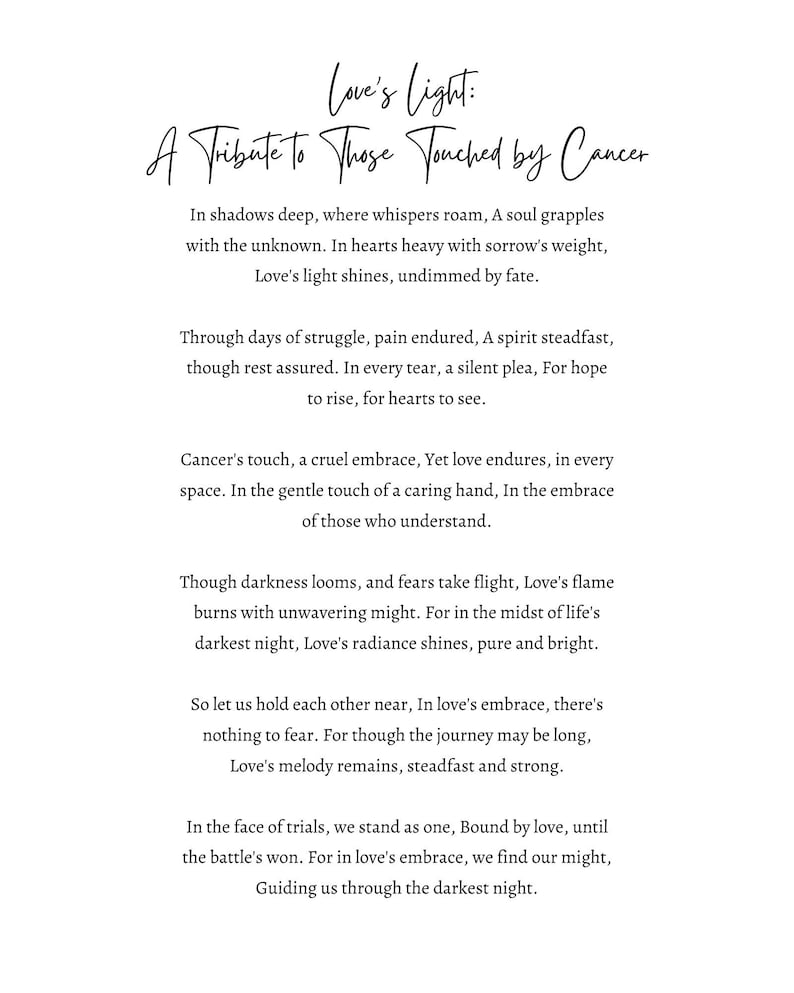 Love's Light:
A Tribute to Those Touched by Cancer
In shadows deep, where whispers roam, A soul grapples
with the unknown. In hearts heavy with sorrow's weight,
Love's light shines, undimmed by fate.
Through days of struggle, pain endured, A spirit steadfast,
though rest assured. In every tear, a silent plea, For hope
to rise, for hearts to see.
Cancer's touch, a cruel embrace, Yet love endures, in every
space. In the gentle touch of a caring hand, In the embrace
of those who understand.
Though darkness looms, and fears take flight, Love's flame
burns with unwavering might. For in the midst of life's
darkest night, Love's radiance shines, pure and bright.
So let us hold each other near, In love's embrace, there's
nothing to fear. For though the journey may be long,
Love's melody remains, steadfast and strong.
In the face of trials, we stand as one, Bound by love, until
the battle's won. For in love's embrace, we find our might,
Guiding us through the darkest night.